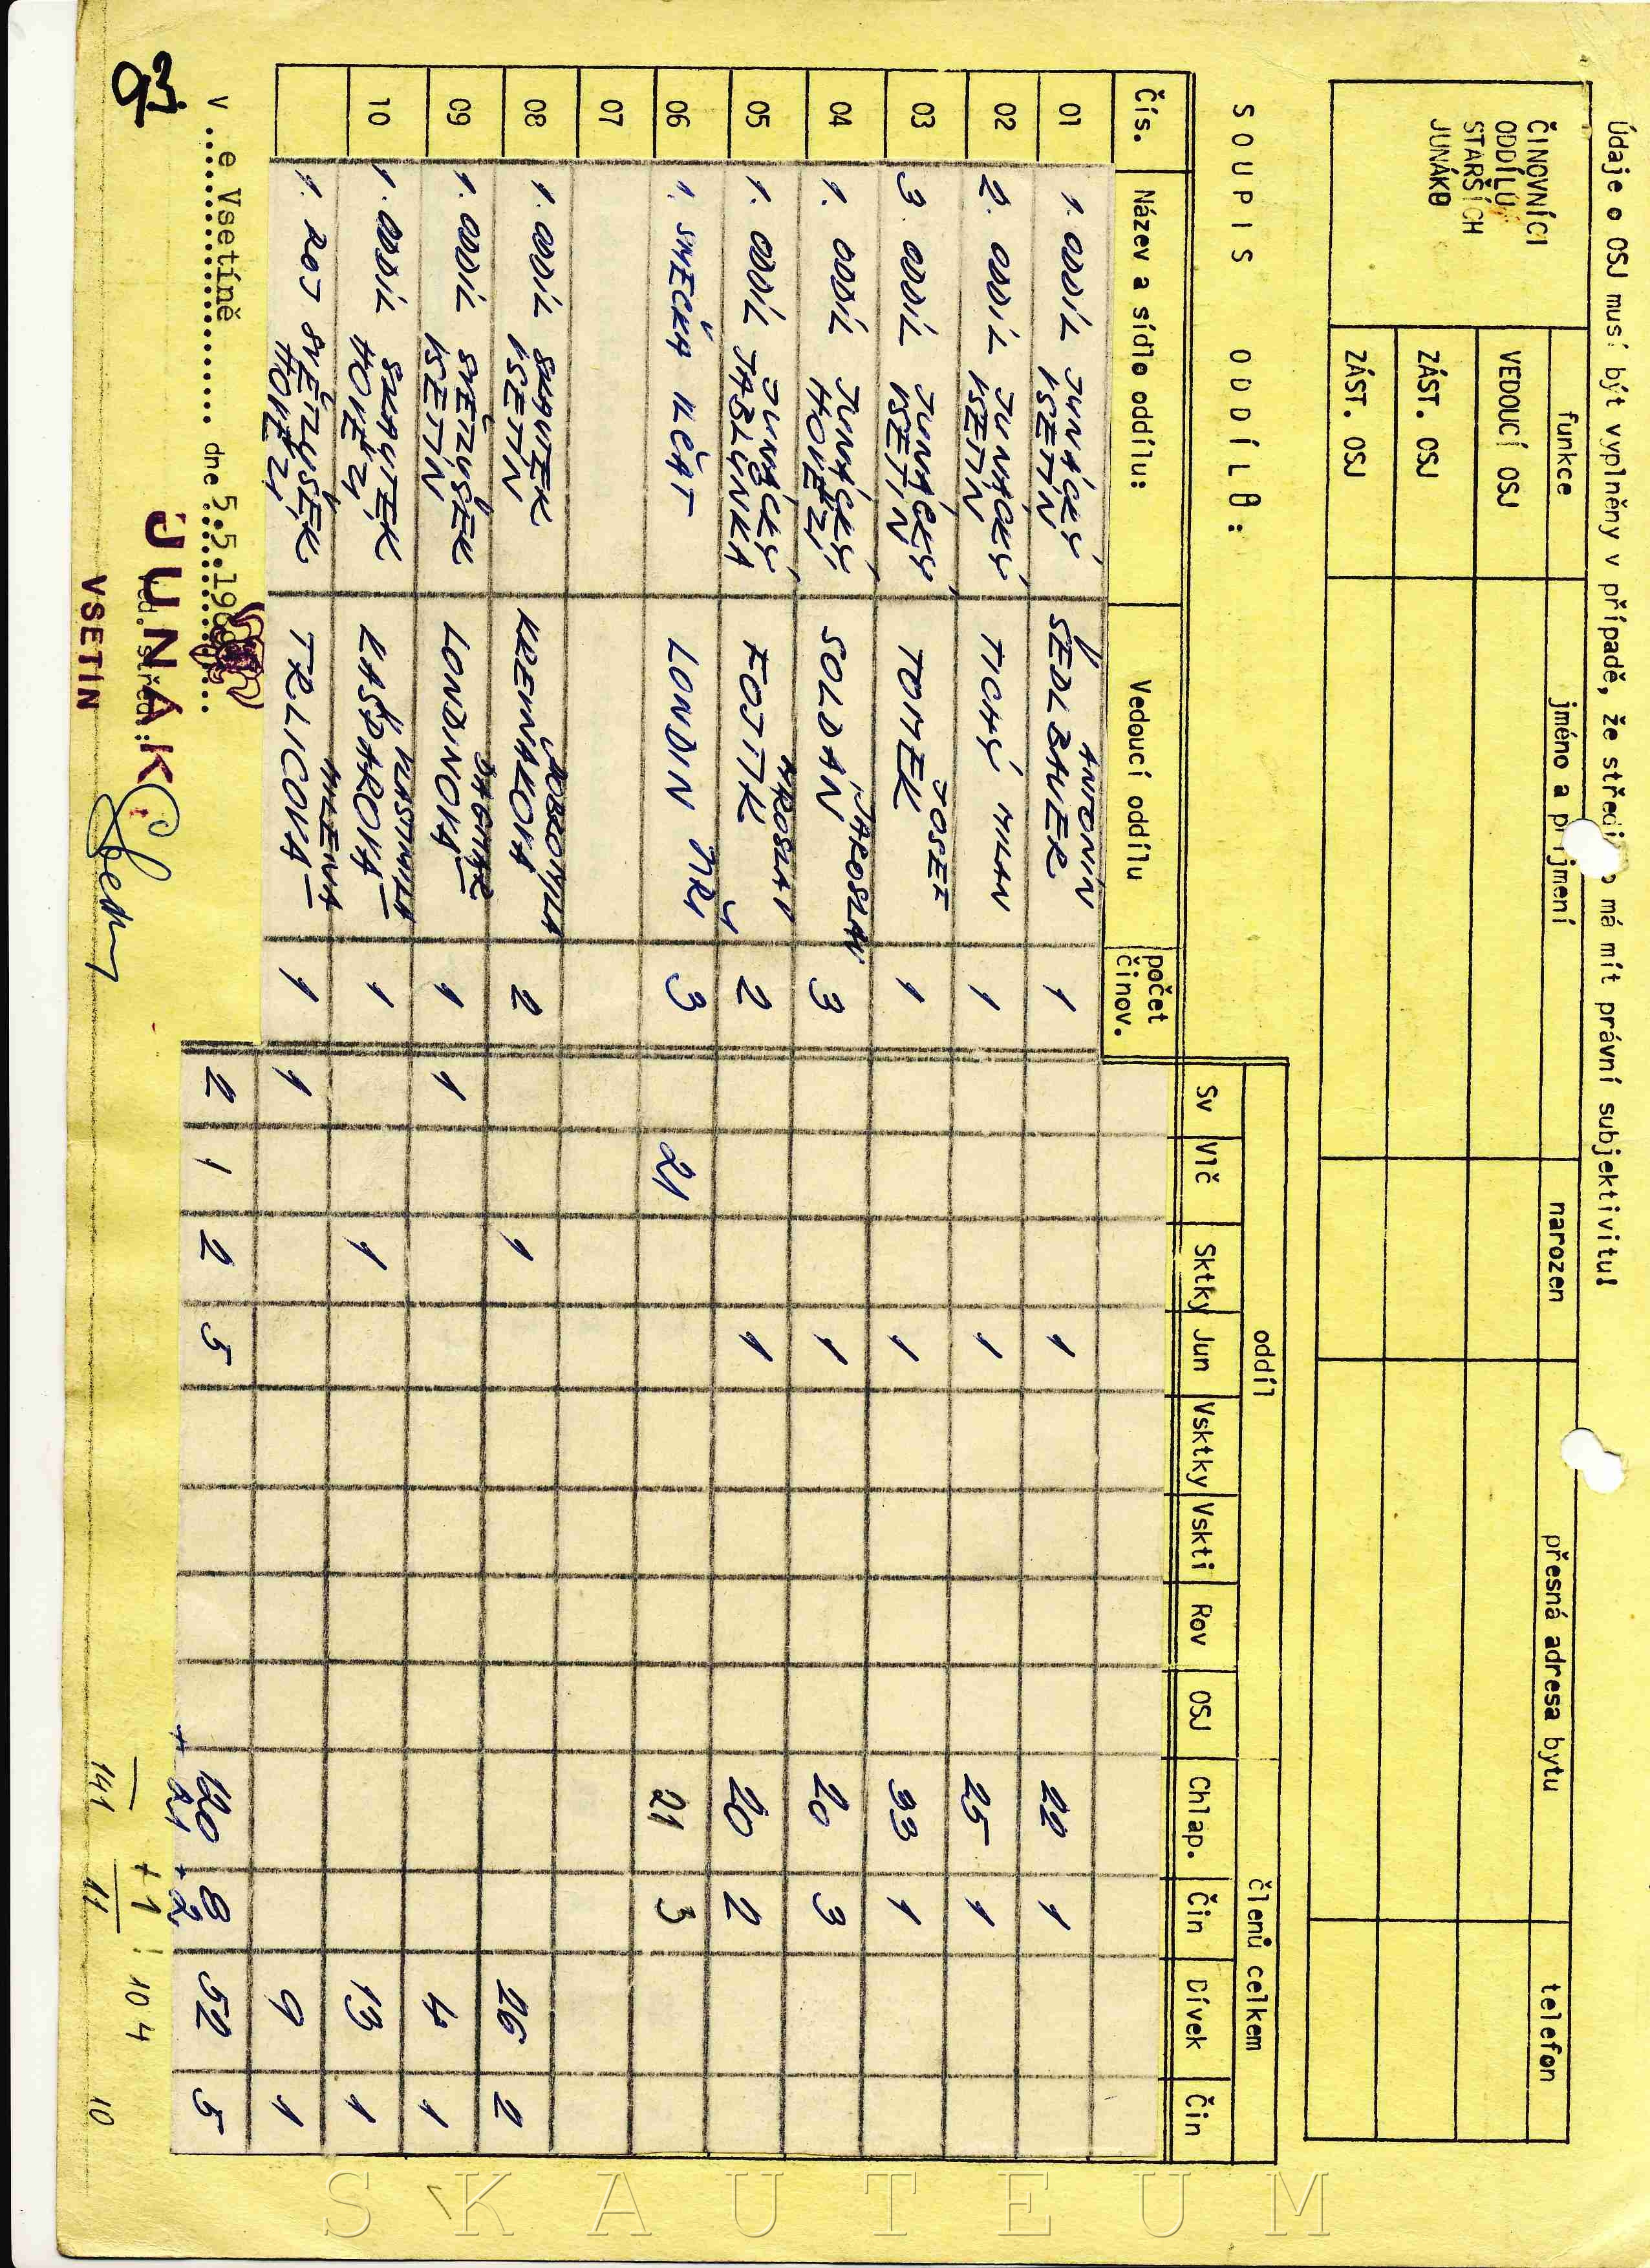 Údaje o OSJ musí být vyplněny v případě, že má mít právní subjektivitu!
ČINOVNÍCI ODDÍLŮ STARŠÍCH JUNÁKŮ
funkce jméno a příjmení narozen přesná adresa bytu telefon
VEDOUCÍ OSJ
ZÁST. OSJ
ZÁST. OSJ
SOUPIS ODDÍLŮ:
oddíl členů celkem
Čís. Název a sídlo oddílu: Vedoucí oddílu počet činov. Sv Vlč Sktky Jun Vsktky Vskti Rov OSJ Chlap. Čin Dívek Čin
01 1. ODDÍL JUNÁCKÝ VSETÍN ŠEDLBAUER ANTONÍN 1 1 22 1
02 2. ODDÍL JUNÁCKÝ VSETÍN TICHÝ MILAN 1 1 25 1
03 3. ODDÍL JUNÁCKÝ VSETÍN TOMEK JOSEF 1 1 33 1
04 1. ODDÍL JUNÁCKÝ HOVĚZÍ SOLDÁN JAROSLAV 3 1 20 3
05 1. ODDÍL JUNÁCKÝ JABLŮNKA FOJTÍK MIROSLAV 2 1 20 2
06 1. SMEČKA VLČAT LONDIN JIŘÍ 3 21 21 3
07
08 1. ODDÍL SKAUTEK VSETÍN DOBROMILA 2 1 26 2
09 1. ODDÍL SVĚTLUŠEK VSETÍN LONDINOVÁ DAGMAR 1 1 4 1
10 1. ODDÍL SKAUTEK HOVĚZÍ KAŠPAROVÁ VLASTIMILA 1 1 13 1
1. ROJ SVĚTLUŠEK HOVĚZÍ TRLICOVÁ MILENA 1 1 9 1
2 1 2 5 120 8 52 5
+ 21 + 2
+ 1 104
141 11 10
v e Vsetíně dne 5.5.19
JUNÁK
VSETÍN
93.
SKAUTEUM